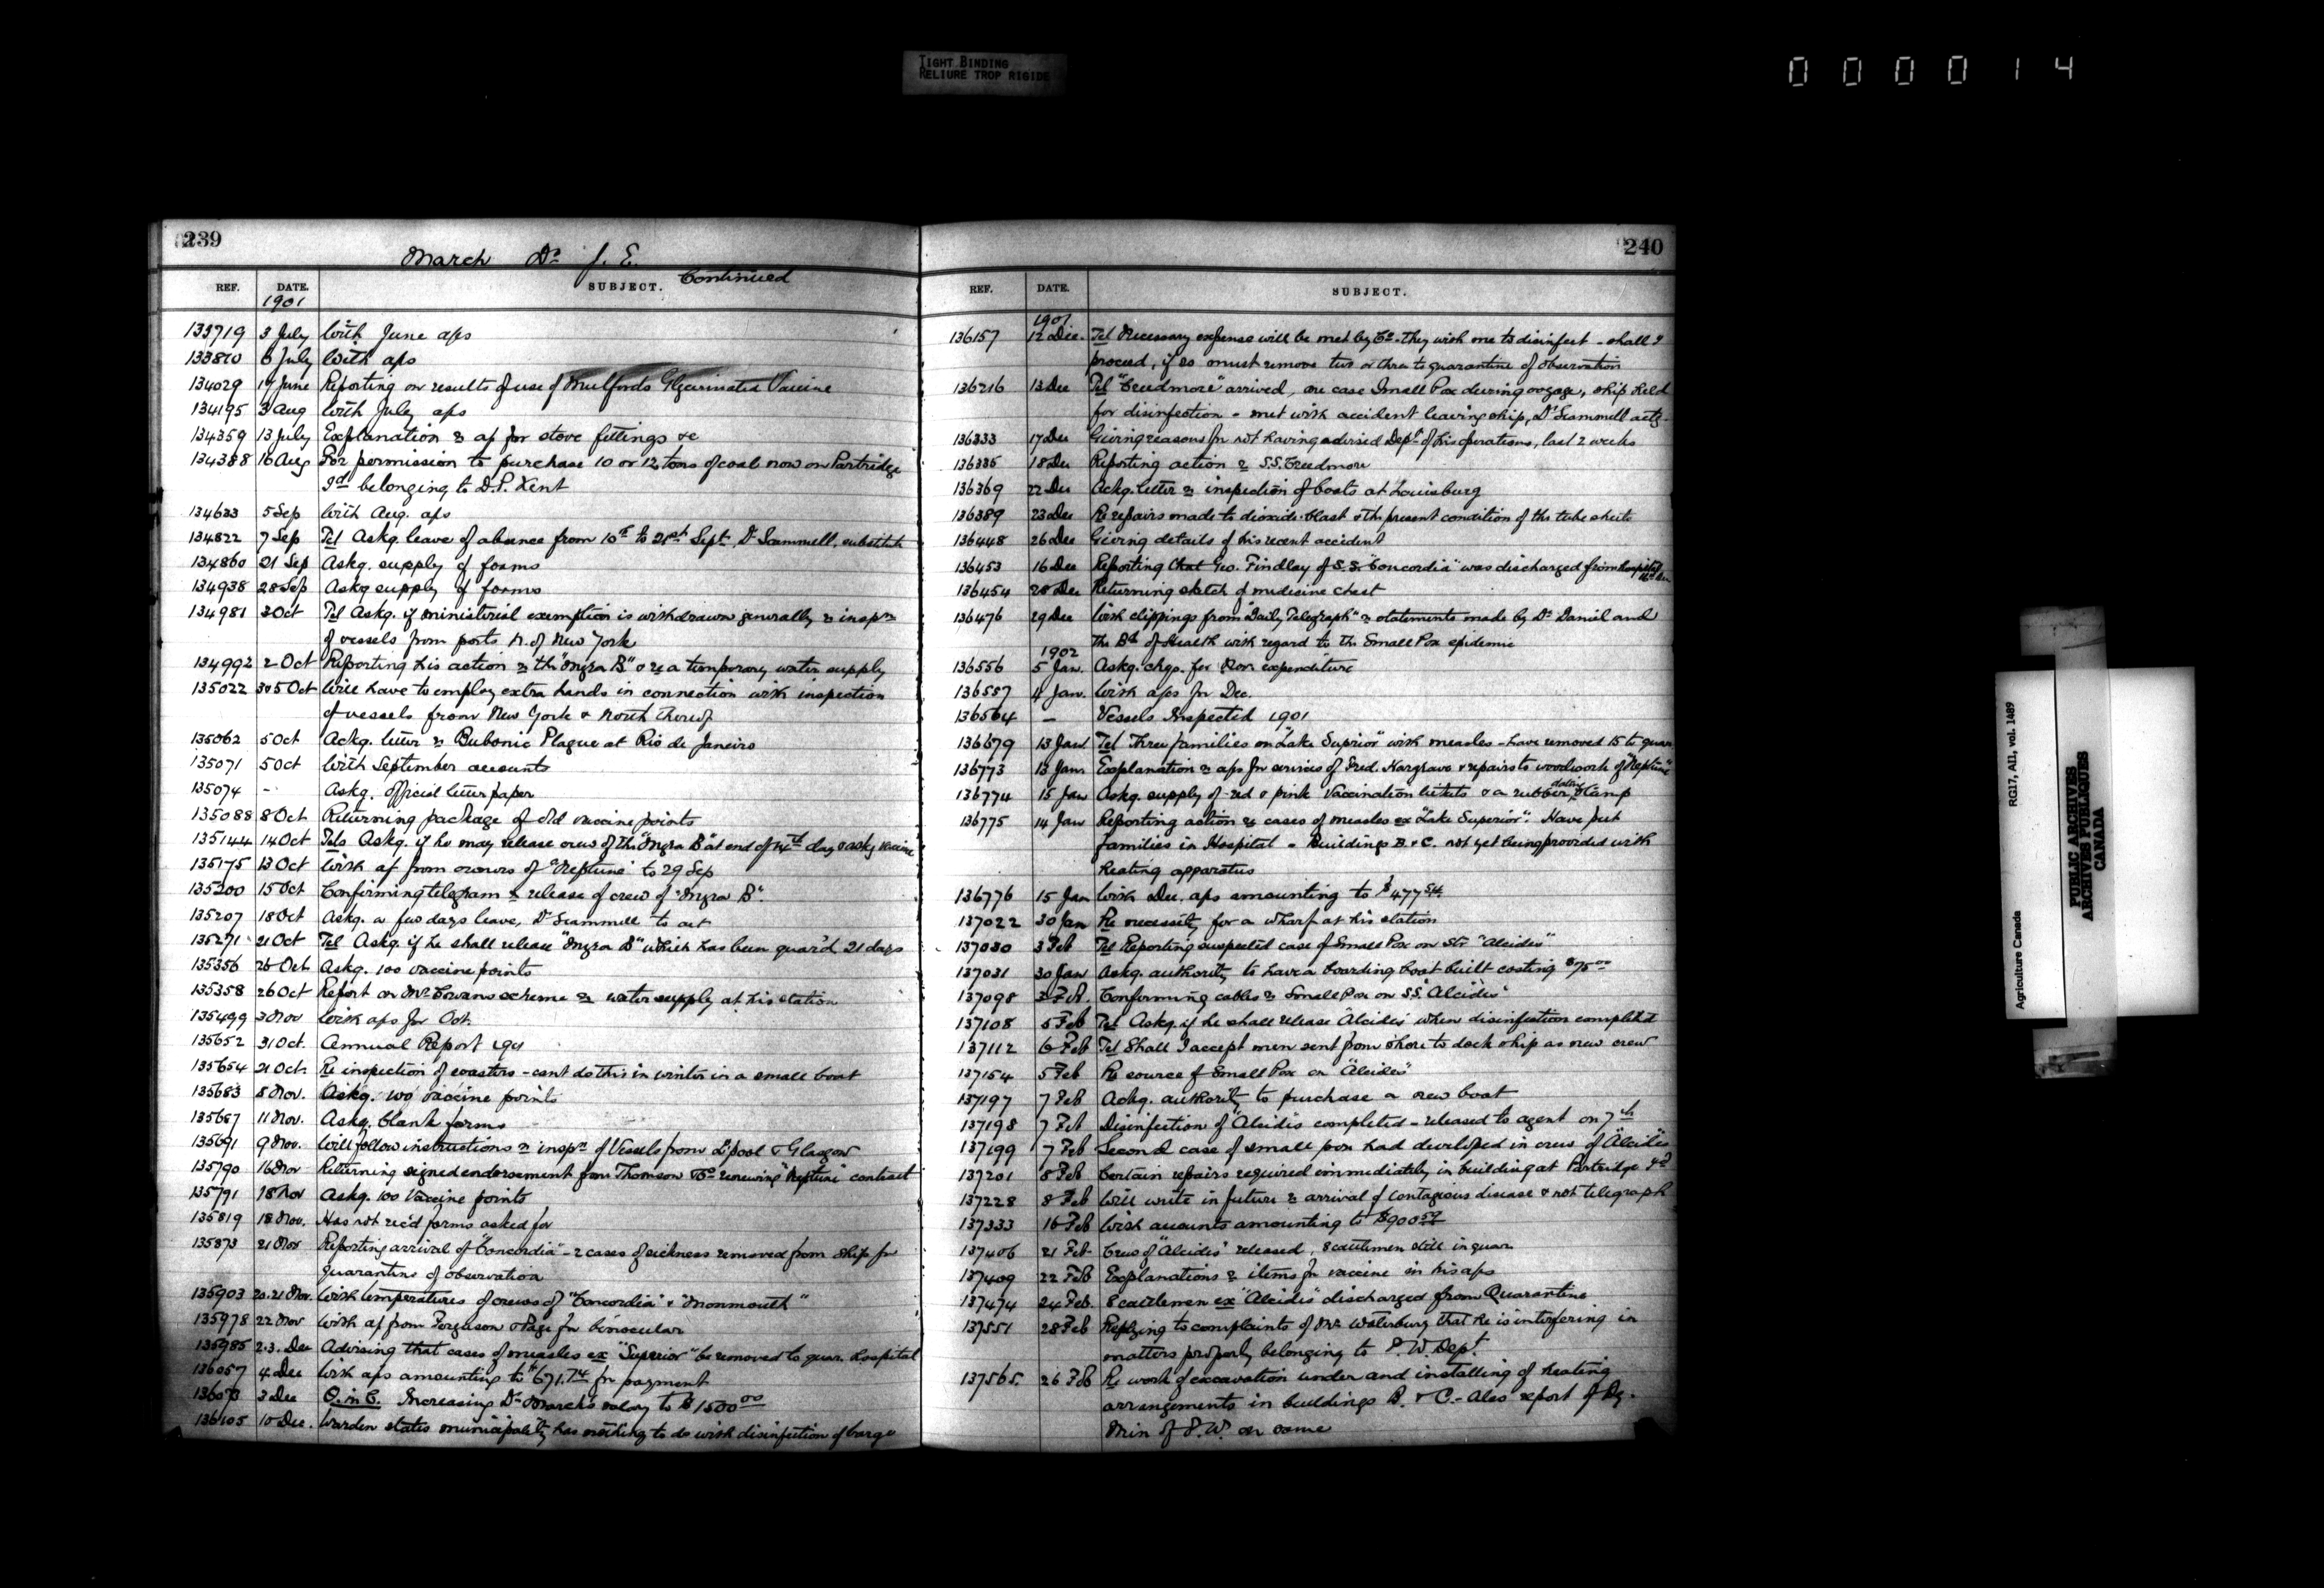 TIGHT BINDING
RELIURE TROP RIGIDE
000014
239
March Dr J. E.
Continued
REF. DATE. SUBJECT.
1901
133719 3 July With June a/cs
133810 6 July With a/cs
134029 17 June Reporting on results of use of Mulfords Glycerinated Vaccine
134195 3 Aug With July a/cs
134359 13 July Explanation re a/c for stove fittings &c
134388 16 Aug For permission to purchase 10 or 12 tons of coal now on Partridge
Id belonging to D.P. Kent
134633 5 Sep With Aug. a/cs
134822 7 Sep Tel Askg. leave of absence from 10th to 21st Sept, Dr Scammell, substitute
134860 21 Sep Askg. supply of forms
134938 28 Sep Askg supply of forms
134981 3 Oct Tel Askg. if ministerial exemption is withdrawn generally re inspn
of vessels from ports N. of New York
134992 2 Oct Reporting his action re the "Myra B" & re a temporary water supply
135022 30 5 Oct Will have to employ extra hands in connection with inspection
of vessels from New York & North thereof
135062 5 Oct Ackg. letter re Bubonic Plague at Rio de Janeiro
135071 5 Oct With September accounts
135074 - Askg. official letter paper
135088 8 Oct Returning package of old vaccine points
135144 14 Oct Tels Askg. if he may release crew of the "Myra B" at end of 14th day & askg vaccine
135175 13 Oct With a/c from owners of "Neptune" to 29 Sep
135200 15 Oct Confirming telegram re release of crew of "Myra B".
135207 18 Oct Askg. a few days leave, Dr Scammell to act
135271 21 Oct Tel Askg. if he shall release "Myra B" which has been quar'd 21 days
135356 26 Oct Askg. 100 vaccine points
135358 26 Oct Report on Mr Cowans scheme re water supply at his station
135499 3 Nov With a/cs for Oct.
135652 31 Oct. Annual Report 1901
135654 21 Oct. Re inspection of coasters - cant do this in winter in a small boat
135683 8 Nov. Askg. 100 vaccine points
135687 11 Nov. Askg. blank forms
135691 9 Nov. Will follow instructions re inspn of Vessels from L'pool & Glasgow
135790 16 Nov Returning signed endorsement from Thomson & Co renewing "Neptune" contract
135791 18 Nov Askg. 100 Vaccine points
135819 18 Nov. Has not rec'd forms asked for
135873 21 Nov Reporting arrival of "Concordia" - 2 cases of sickness removed from ship for
quarantine of observation
135903 20.21 Nov. With temperatures of crews of "Concordia" & "Monmouth"
135978 22 Nov With a/c from Ferguson & Page for binocular
135985 2.3. Dec Advising that cases of measles ex "Superior" be removed to quar. hospital
136057 4 Dec With a/cs amounting to $671.74 for payment
136073 3 Dec O. in C. Increasing Dr March's salary to $1500 00
136105 10 Dec. Warden states municipality has nothing to do with disinfection of barge
240
REF. DATE. SUBJECT.
1901
136157 12 Dec. Tel Necessary expense will be met by Co. they wish me to disinfect - shall I
proceed, if so must remove two or three to quarantine of observation
136216 13 Dec Tel "Creedmore" arrived, one case Small Pox during voyage, ship held
for disinfection - met with accident leaving ship, Dr Scammell actg.
136333 17 Dec Giving reasons for not having advised Dept of his operations, last 2 weeks
136335 18 Dec Reporting action re S.S. Creedmore
136369 22 Dec Ackg. letter re inspection of boats at Louisburg
136389 23 Dec Re repairs made to dioxide-blast & the present condition of the tube sheets
136448 26 Dec Giving details of his recent accident
136453 16 Dec Reporting that Geo. Findlay of S.S. "Concordia" was discharged from Hospital
136454 28 Dec Returning sketch of medicine chest
136476 29 Dec With clippings from "Daily Telegraph" re statements made by Dr Daniel and
the Bd of Health with regard to the Small Pox epidemic
1902
136556 5 Jan. Askg. chqs. for Nov expenditure
136557 4 Jan. With a/cs for Dec.
136564 - Vessels Inspected 1901
136679 13 Jan Tel Three families on "Lake Superior" with measles - have removed 15 to quar.
136773 13 Jan. Explanation re a/cs for services of Fred. Hargrave & repairs to woodwork of "Neptune"
136774 15 Jan Askg. supply of red & pink Vaccination tickets & a rubber dating stamp
136775 14 Jan Reporting action re cases of measles ex "Lake Superior". Have put
families in Hospital - Buildings B. & C. not yet being provided with
heating apparatus
136776 15 Jan With Dec. a/cs amounting to $477 54
137022 30 Jan Re necessity for a wharf at his station
137030 3 Feb Tel Reporting suspected case of Small Pox on Str "Alcides"
137031 30 Jan Askg. authority to have a boarding boat built costing $75 00
137098 3 Feb. Confirming cables re Small Pox on S.S. "Alcides"
137108 5 Feb Tel Askg. if he shall release "Alcides" when disinfection completed
137112 6 Feb Tel Shall I accept men sent from shore to dock ship as new crew
137154 5 Feb Re source of Small Pox on "Alcides"
137197 7 Feb Ackg. authority to purchase a new boat
137198 7 Feb Disinfection of "Alcides completed - released to agent on 7th
137199 7 Feb Second case of small pox had developed in crew of "Alcides"
137201 8 Feb Certain repairs required immediately in building at Partridge Id
137228 8 Feb Will write in future re arrival of contagious disease & not telegraph
137333 16 Feb With accounts amounting to $900 59
137406 21 Feb. Crew of "Alcides" released, 8 cattlemen still in quar.
137409 22 Feb Explanations re items for vaccine in his a/cs
137474 24 Feb. 8 cattlemen ex "Alcides" discharged from Quarantine
137551 28 Feb Replying to complaints of Mr Waterbury that he is interfering in
matters properly belonging to P.W. Dept.
137565. 26 Feb Re work of excavation under and installing of heating
arrangements in buildings B. & C. - Also report of Dy.
Min of P.W. on same
Agriculture Canada RG17, AII, vol. 1489
PUBLIC ARCHIVES
ARCHIVES PUBLIQUES
CANADA